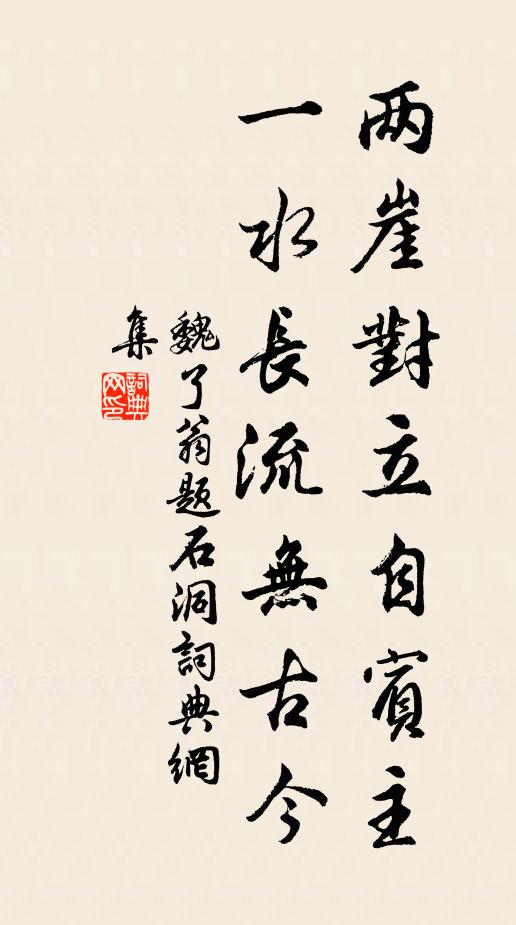 两崖對立自賓主
一水長流無古今
魏了翁題石洞詞典網
集
詞典
网印